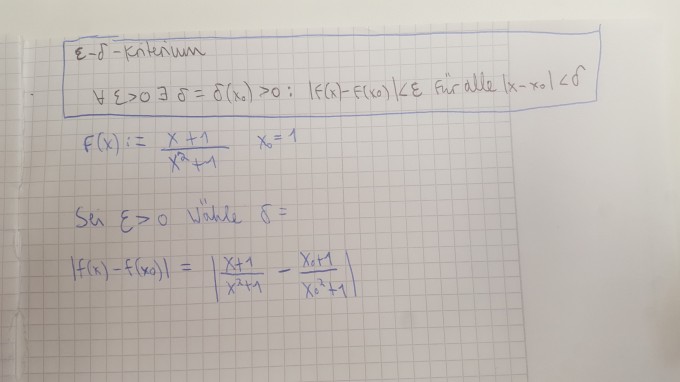 ε-δ-Kriterium
∀ ε>0 ∃ δ = δ(x₀) >0 : |f(x)-f(x₀)|<ε Für alle |x-x₀|<δ
f(x) := (x+1)/(x²+1) x₀=1
Sei ε>0 Wähle δ=
|f(x)-f(x₀)| = |(x+1)/(x²+1) - (x₀+1)/(x₀²+1)|